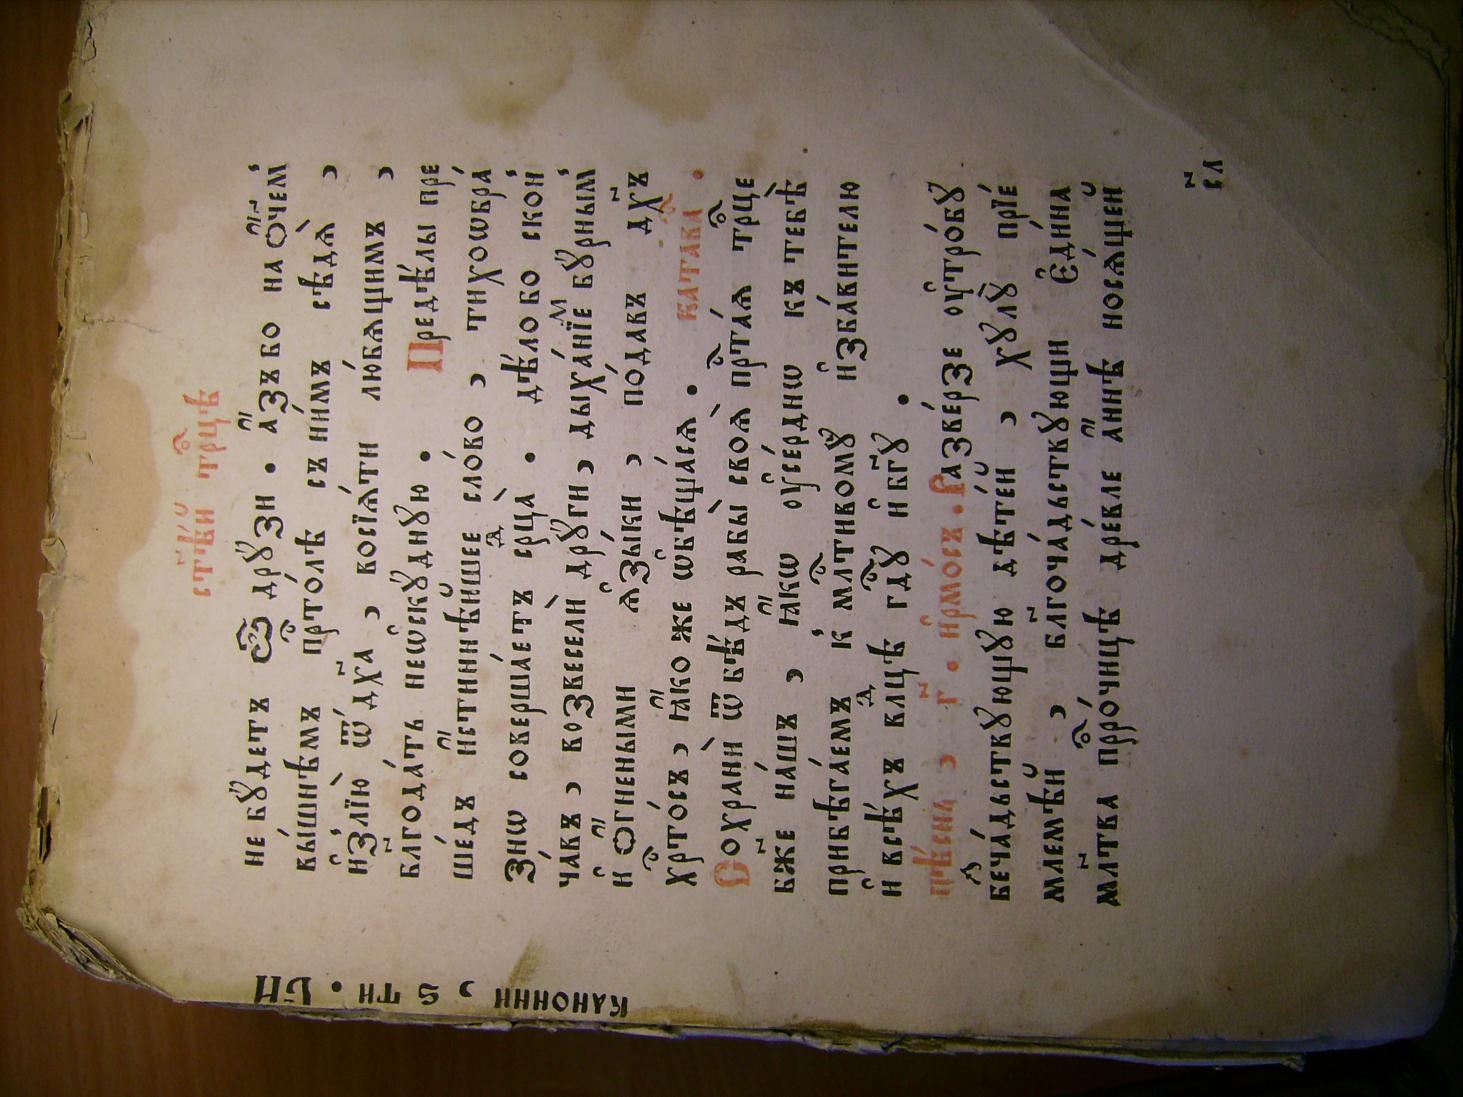 ст҃ѣ́й тр҃цѣ
не бꙋ́детъ ѿ дрꙋзи . а҆́зъ бо на Ѻ҆чем̾
вы́шнѣмъ пр҃то́лѣ съ ни́мъ сѣдѧ̀ ,
и҆злїю̀ ѿ дх҃а , восїѧ́ти лю́бѧщимъ ,
бл҃года́ть неѡ҆скꙋ́днꙋю . Предѣ́лы пре
ше́дъ и҆́стиннѣйшее сло́во , тихоѡбра́
знѡ соверша́етъ срⷣца̀ . дѣ́ло бо скон̾
ча́въ , возвеселѝ дрꙋ́ги , дыха́нїеⷨ бꙋрным̾
и҆ Ѻ҆́гнеными ѧ҆зы́ки , по́давъ дх҃ъ
хрⷭ҇то́съ , ꙗ҆́коже ѡ҆бѣща́сѧ . катава .
Сохранѝ ѿ бѣ́дъ рабы̀ своѧ̀ прⷭ҇та́ѧ трⷪ҇це
бж҃е на́шъ , ꙗ҆́кѡ ᲂу҆се́рднѡ къ тебѣ̀
прибѣга́емъ к̾ млⷭ҇тивомꙋ̀ и҆зба́вителю
и҆ всѣ́хъ влⷣцѣ гдⷭ҇ꙋ и҆ бг҃ꙋ .
пѣ́снь , г҃ . и҆рмо́съ . Разве́рзе ᲂу҆тро́бꙋ
беⷥча́дьствꙋющꙋю дѣ́тей , хꙋлꙋ̀ прїе́
млемѣй , бл҃гоча́дьствꙋющи Е҆ди́на
мл҃тва прⷪ҇ро́чицѣ дре́вле а҆́ннѣ носѧ́щей
сл҃
канони , ѕ ти . н҃и